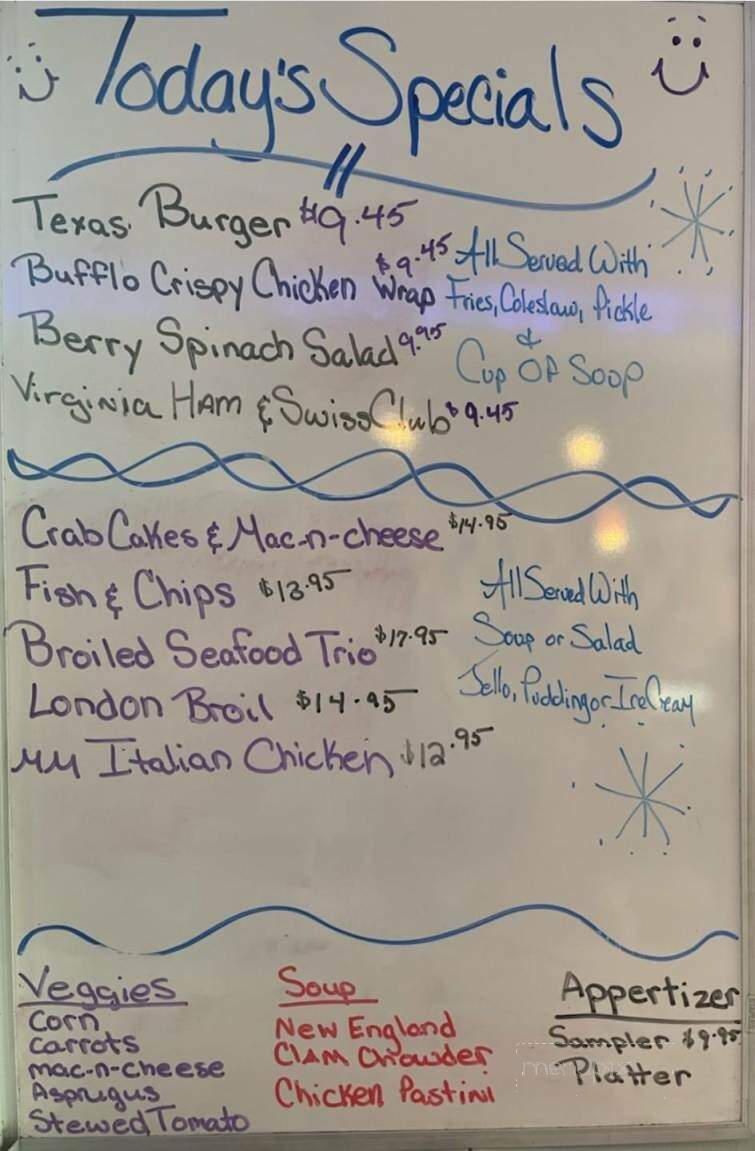 Today's Specials
Texas Burger $9.45
Bufflo Crispy Chicken Wrap $9.45
Berry Spinach Salad 9.95
Virginia Ham & Swiss Club $9.45
All Served With
Fries, Coleslaw, Pickle
&
Cup Of Soop
Crab Cakes & Mac-n-cheese $14.95
Fish & Chips $13.95
Broiled Seafood Trio $17.95
London Broil $14.95
Italian Chicken $12.95
All Served With
Soup or Salad
Jello, Pudding or Ice Cream
Veggies
Corn
Carrots
mac-n-cheese
Asprugus
Stewed Tomato
Soup
New England
Clam Chowder
Chicken Pastini
Appertizer
Sampler $9.95
Platter